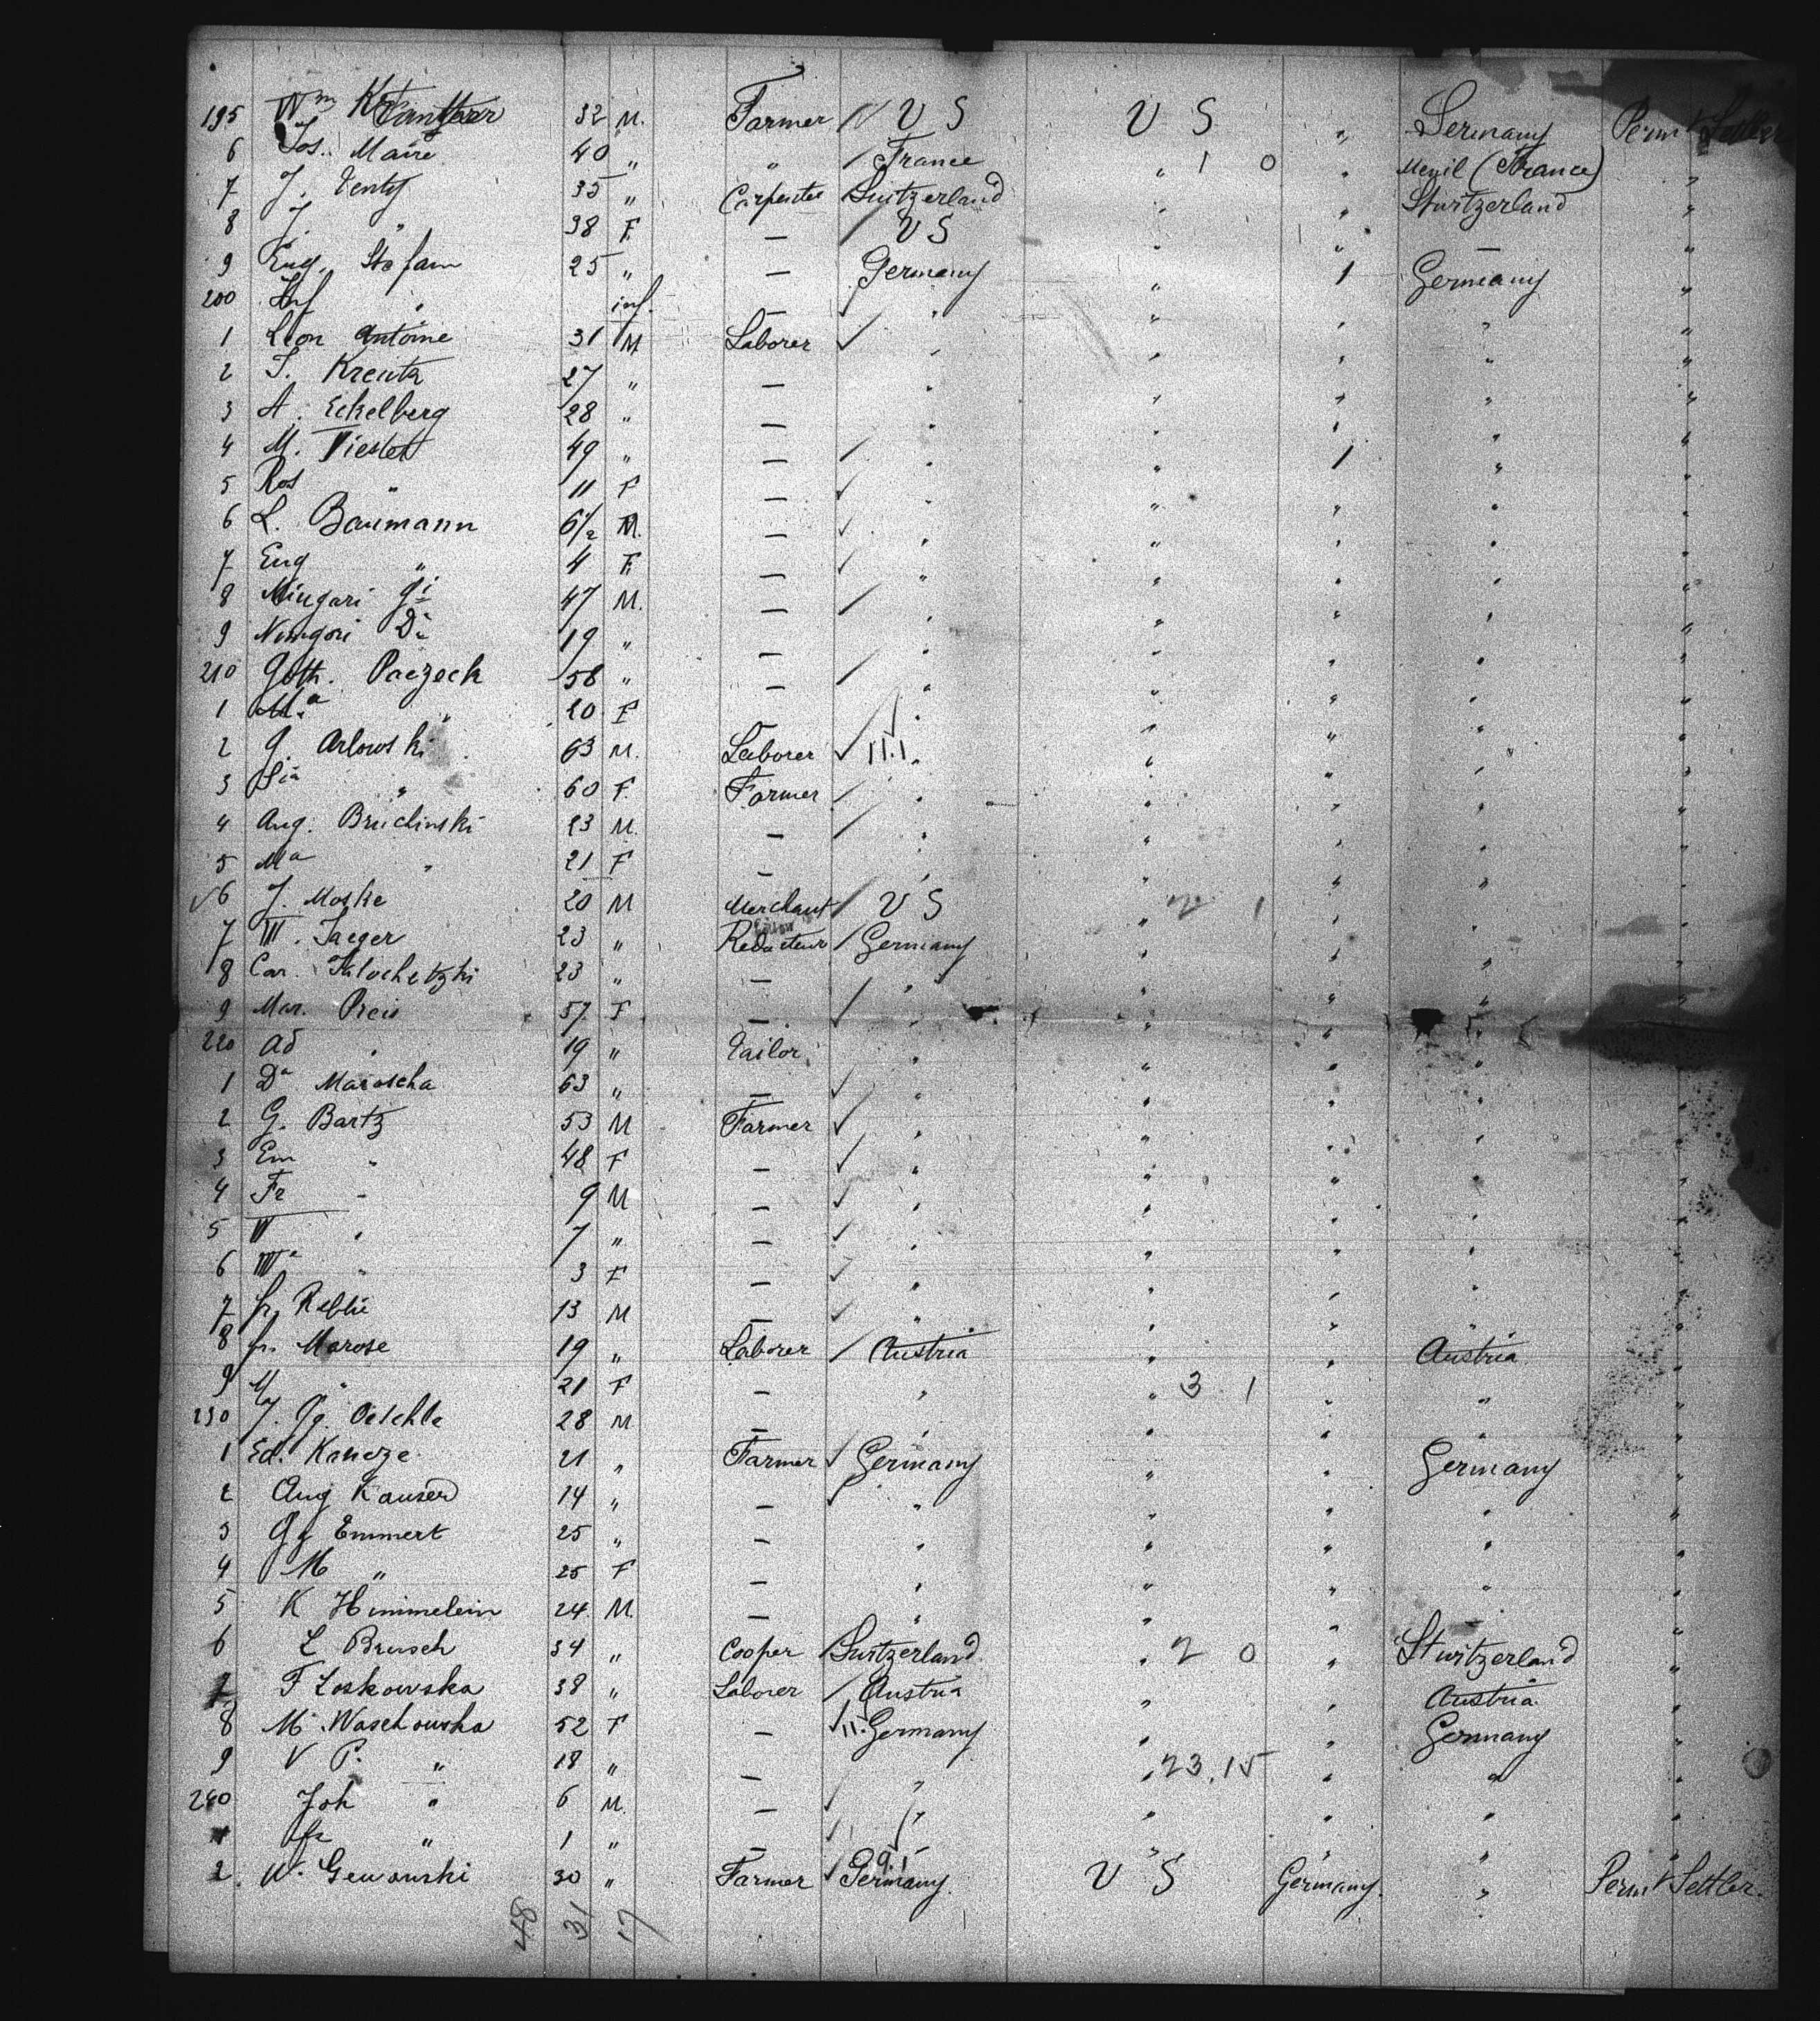 195 Wm 32 M. Farmer U S U S " Germany Perm't Settler
6 Jos. Maire 40 " " France " 1 0 " Menil (France) "
7 J. 35 " Carpenter Switzerland " " Switzerland "
8 J. " 38 F. — U S " " — "
9 Eug. Stefann 25 " — Germany " 1 Germany "
200 Inf " inf. — " " " " "
1 Leon Antoine 31 M Laborer " " " " "
2 J. Kreutz 27 " — " " " " "
3 A. Eckelberg 28 " — " " " " "
4 M. 49 " — " " 1 " "
5 Ros " 11 F — " " " " "
6 L. Baumann 6 1/2 M. — " " " " "
7 Eug " 4 F. — " " " " "
8 Mingari Gi 47 M. — " " " " "
9 Da 19 " — " " " " "
210 Goth. Paczeck 58 " — " " " " "
1 Ma " 20 F — " " " " "
2 G. Arlowski 63 M. Laborer 11.1 " " " " "
3 " 60 F. Farmer " " " " "
4 Aug. Bruchinski 23 M. — " " " " "
5 Ma " 21 F — " " " " "
6 J. Moske 20 M Merchant U S " 2 1 " " "
7 W. Jaeger 23 " Redacteur Germany " " " "
8 Car. 23 " — " " " " "
9 Mar. Preis 57 F — " " " " "
220 Ad " 19 " Tailor " " " " "
1 Da Maroscha 63 " — " " " " "
2 G. Bartz 53 M Farmer " " " " "
3 Em " 48 F — " " " " "
4 Fr " 9 M — " " " " "
5 W " 7 " — " " " " "
6 Wa " 3 F — " " " " "
7 13 M — " " " " "
8 Fr. Marose 19 " Laborer Austria " " Austria "
9 " 21 F — " " 3 1 " " "
230 J. Gg. Oeschle 28 M — " " " " "
1 Ed. Kancze 21 " Farmer Germany " " Germany "
2 Aug Kauser 14 " — " " " " "
3 Gg Emmert 25 " — " " " " "
4 M " 25 F — " " " " "
5 K Himmelein 24 M. — " " " " "
6 L Brusch 34 " Cooper Switzerland " 2 0 " Switzerland "
7 F Loskowska 38 " Laborer Austria " " Austria "
8 M. Waschowska 52 F — 11. Germany " " Germany "
9 V P. " 18 " — " " 23.15 " " "
240 Joh " 6 M. — " " " " "
1 Fr " 1 " — " " " " "
2 W. Gewonski 30 " Farmer 9.1 Germany U S Germany. " Perm't Settler.
48 31 17